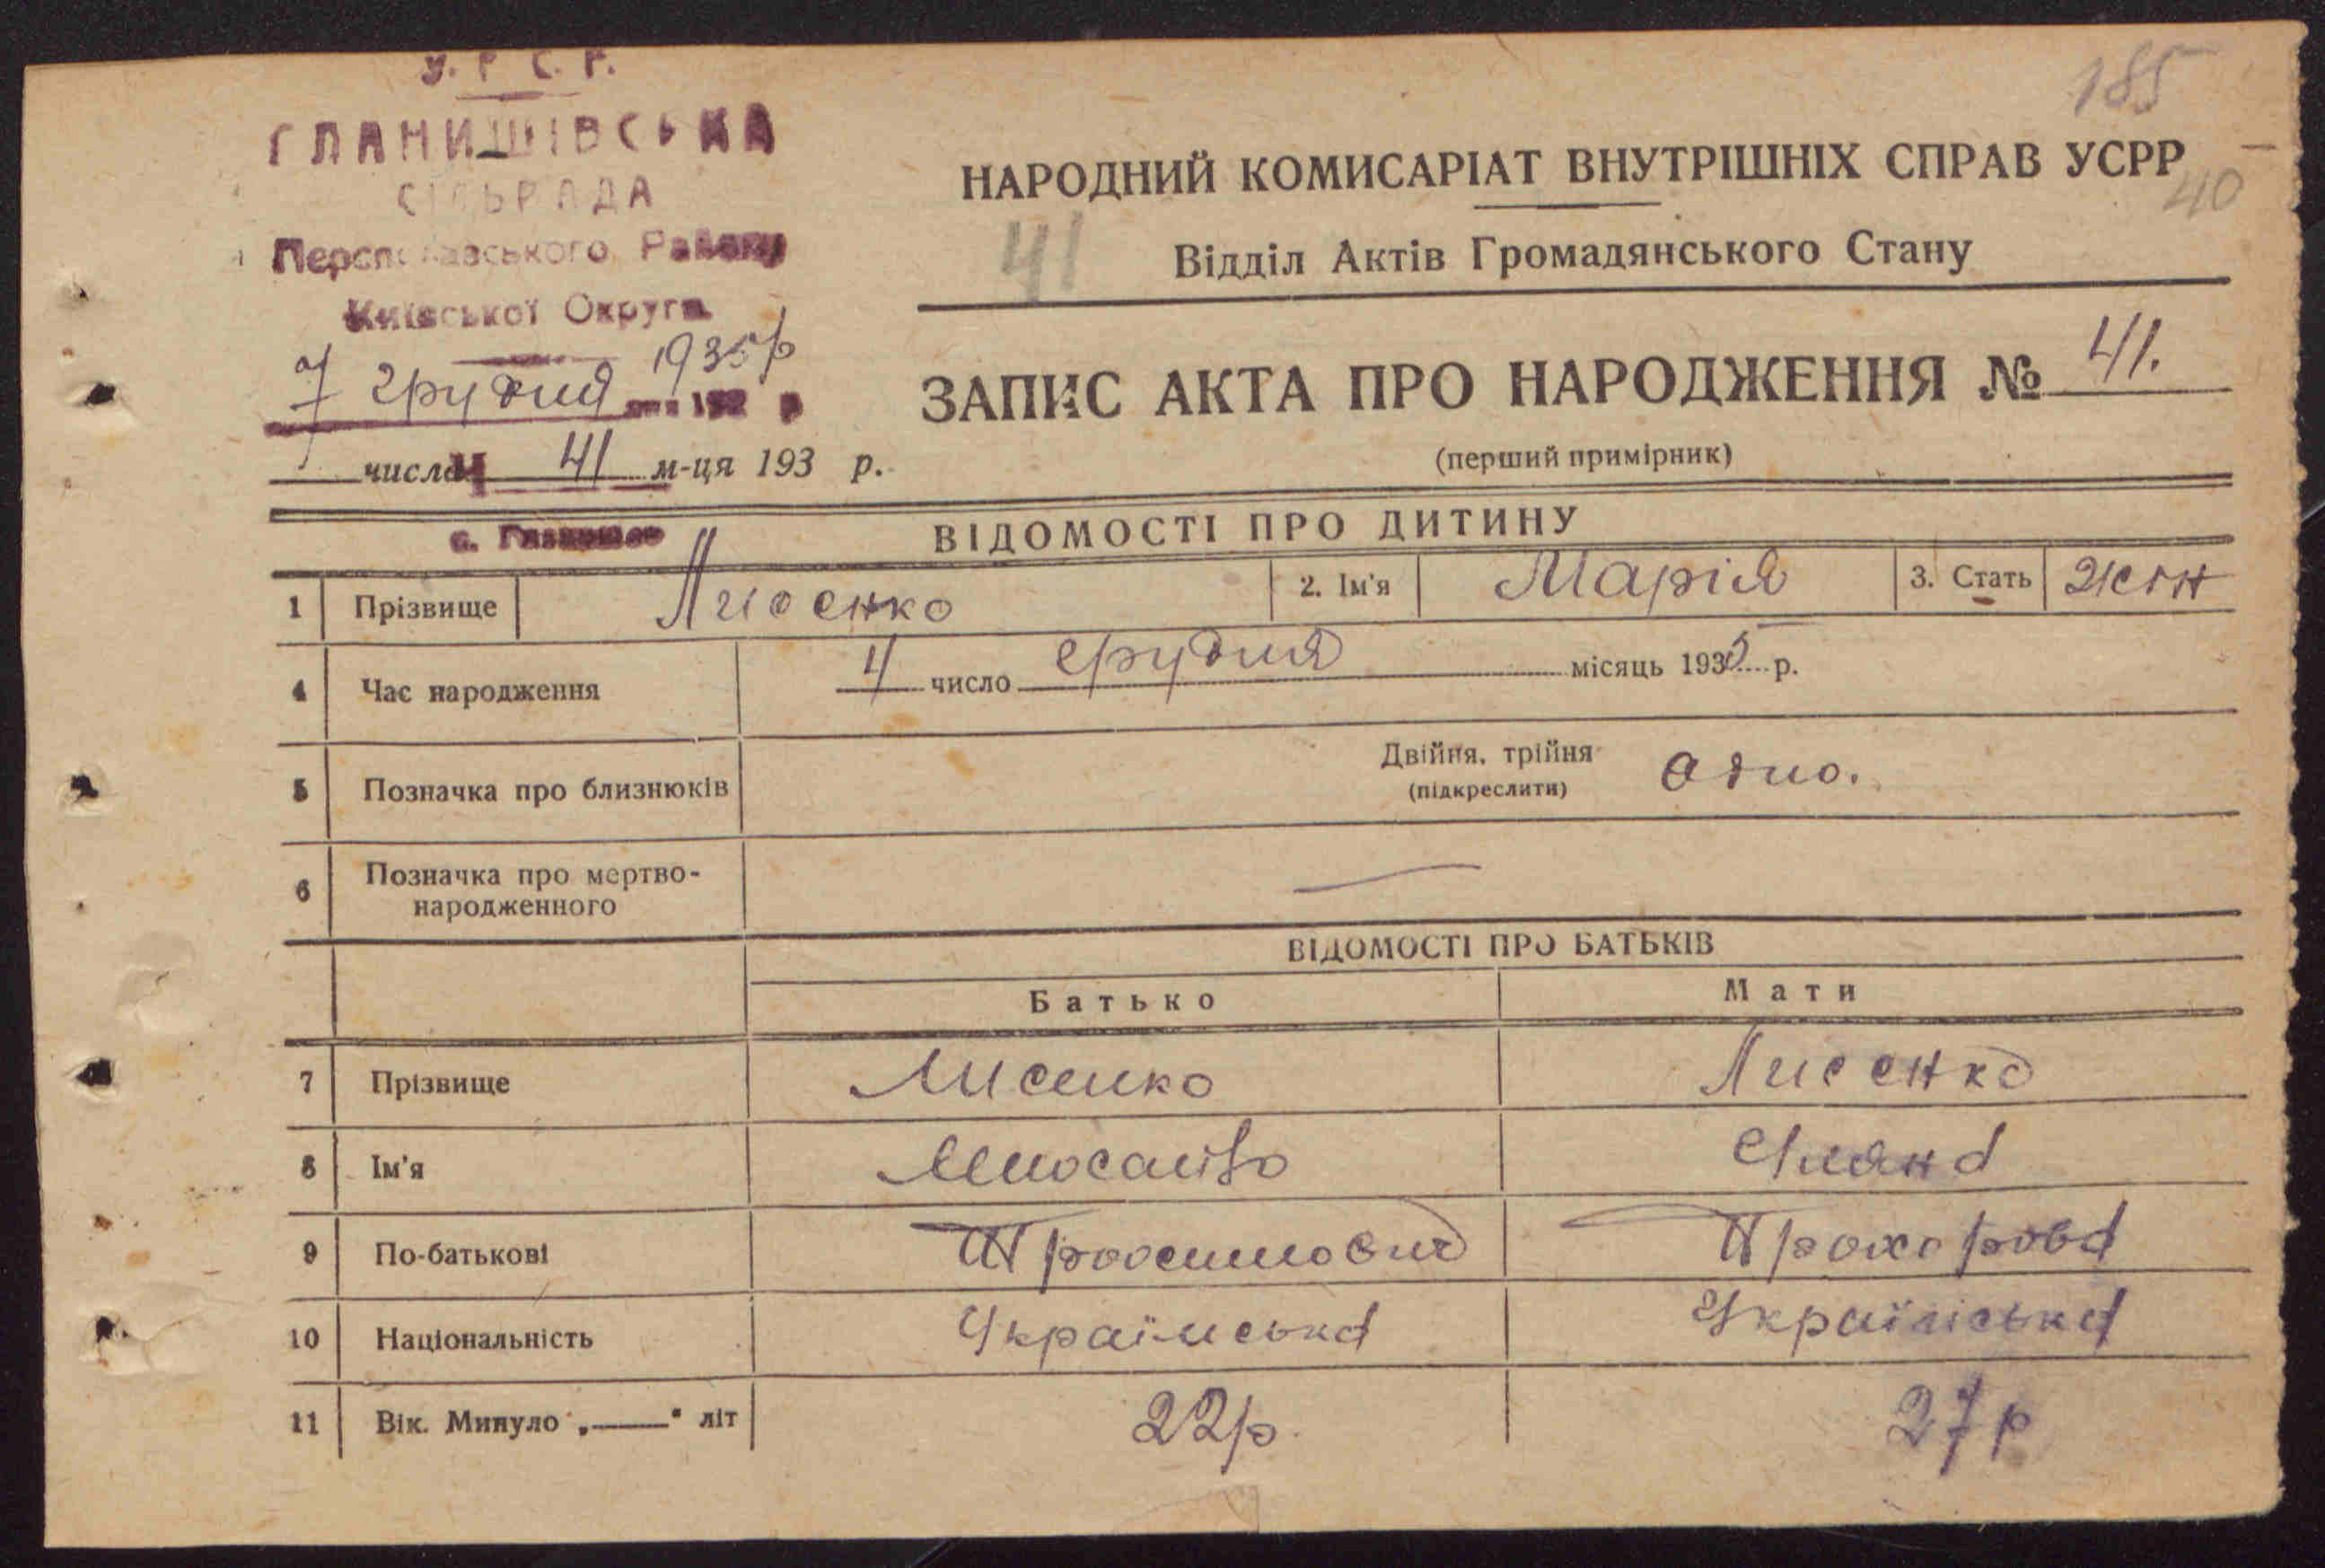 У. Р. С. Р.
ГЛАНИШІВСЬКА
СІЛЬРАДА
Переяславського Району
Київської Округи
7 грудня 1935 р
дня 192 р
числа № 41 м-ця 193 р.
с. Гланишев
185
НАРОДНИЙ КОМИСАРІАТ ВНУТРІШНІХ СПРАВ УСРР
40
41
Відділ Актів Громадянського Стану
ЗАПИС АКТА ПРО НАРОДЖЕННЯ № 41.
(перший примірник)
ВІДОМОСТІ ПРО ДИТИНУ
1 Прізвище Лисенко 2. Ім'я Марія 3. Стать жін
4 Час народження 4 число грудня місяць 1935 р.
5 Позначка про близнюків Двійня, трійня (підкреслити) одно.
6 Позначка про мертво-
народженного —
ВІДОМОСТІ ПРО БАТЬКІВ
Батько Мати
7 Прізвище Лисенко Лисенко
8 Ім'я
9 По-батькові Прохорова
10 Національність Українська Українська
11 Вік. Минуло „——" літ 22р. 27р